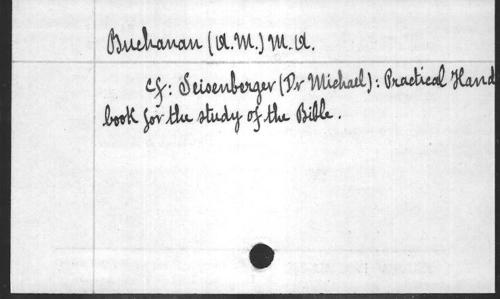 Buchanan (A.M.) M.A.
cf: Seisenberger (Dr Michael): Practical Hand
book for the study of the Bible.